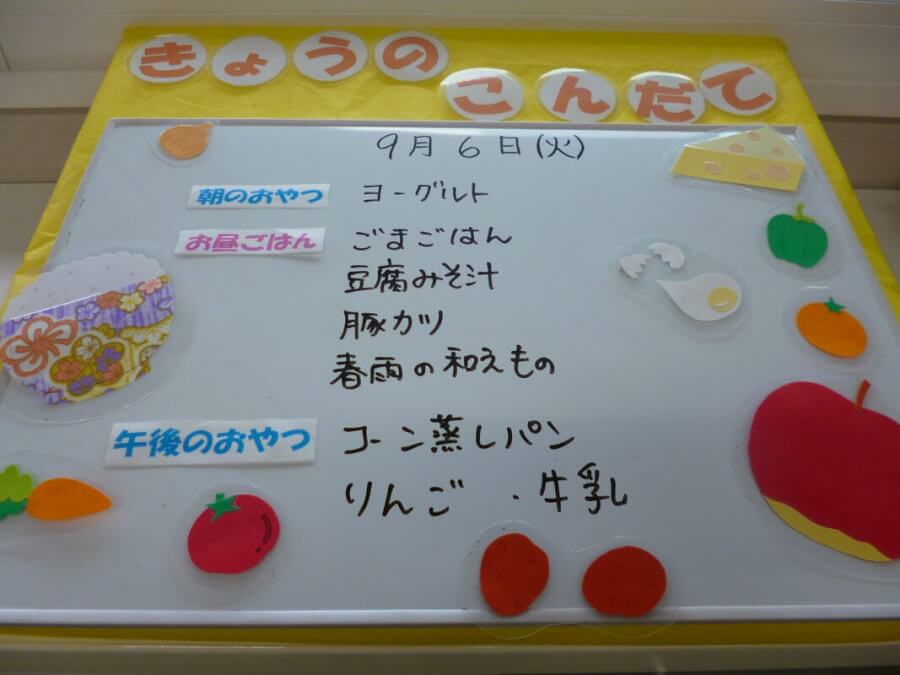 きょうの
こんだて
9月6日(火)
朝のおやつ ヨーグルト
お昼ごはん ごまごはん
豆腐みそ汁
豚カツ
春雨の和えもの
午後のおやつ コーン蒸しパン
りんご ・牛乳